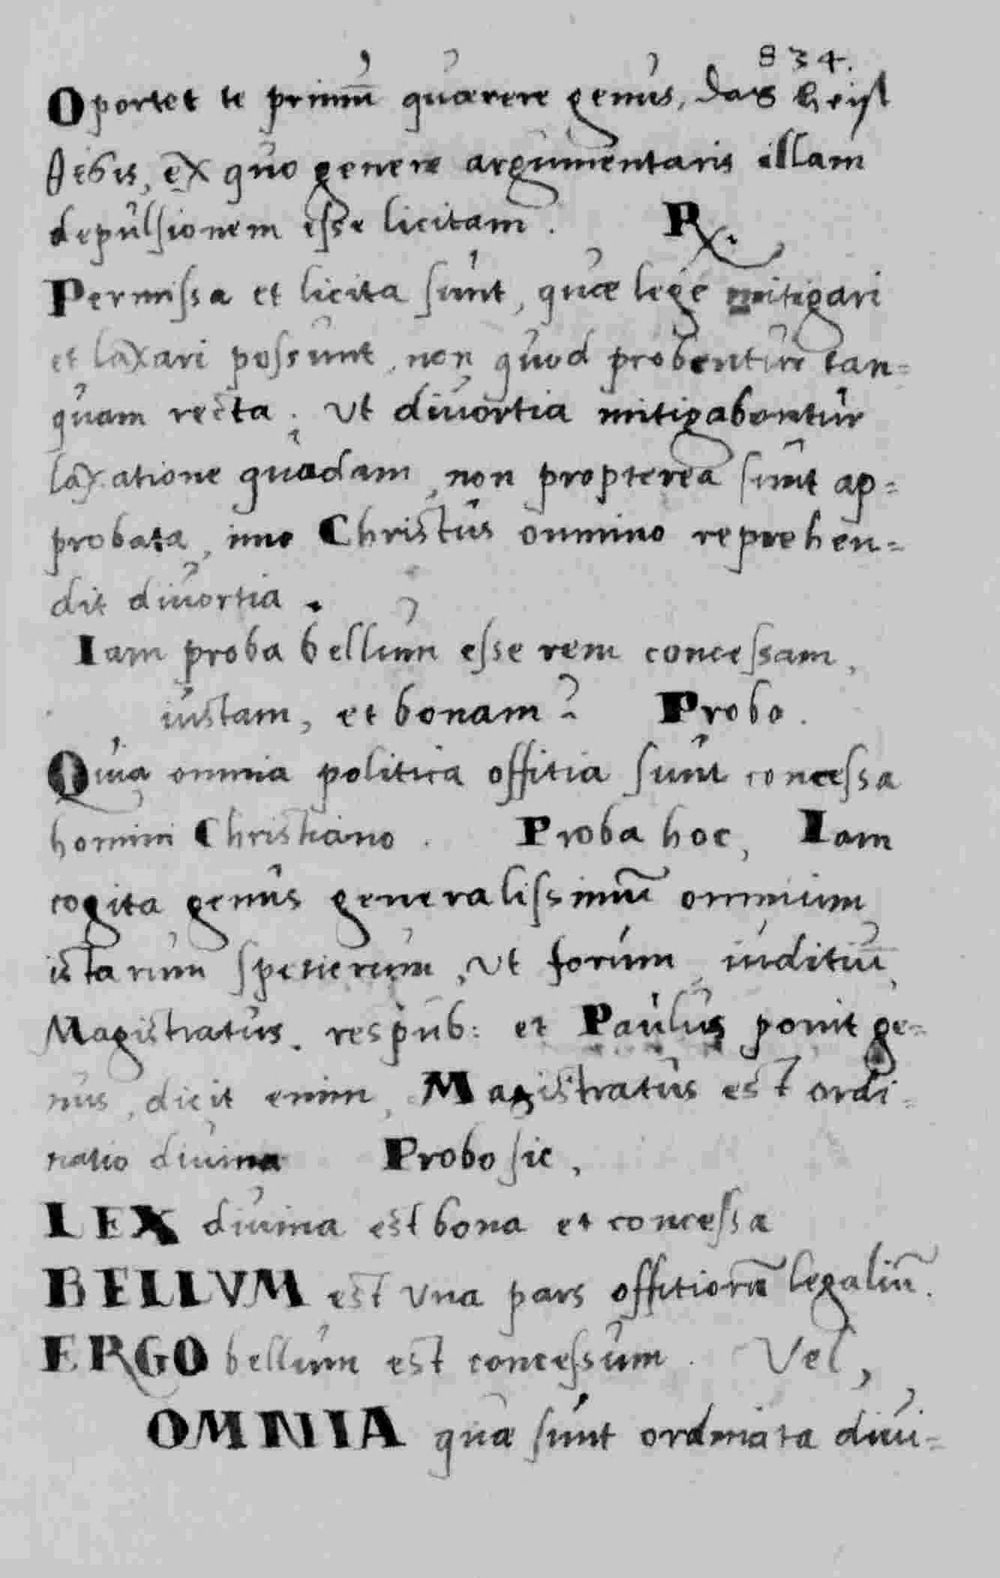 834.
Oportet te primū quærere genus, das heist
ex quo genere argumentaris illam
depulsionem esse licitam. R.
Permissa et licita sunt, quæ lege mitigari
et laxari possunt, non quod probentur tan=
quam recta. Ut divortia mitigabantur
laxatione quadam, non propterea sunt ap=
probata, imo Christus omnino reprehen=
dit divortia.
Iam proba bellum esse rem concessam,
iustam, et bonam? Probo.
Quia omnia politica offitia sunt concessa
homini Christiano. Proba hoc, Iam
cogita genus generalissimū omnium
istarum spetierum, Ut forum, iuditiū,
Magistratus. respub: et Paulus ponit ge=
nus, dicit enim, Magistratus est ordi=
natio divina Probo sic,
LEX divina est bona et concessa
BELLVM est Una pars offitiorū legaliū.
ERGO bellum est concessum. Vel,
OMNIA quæ sunt ordinata divi=